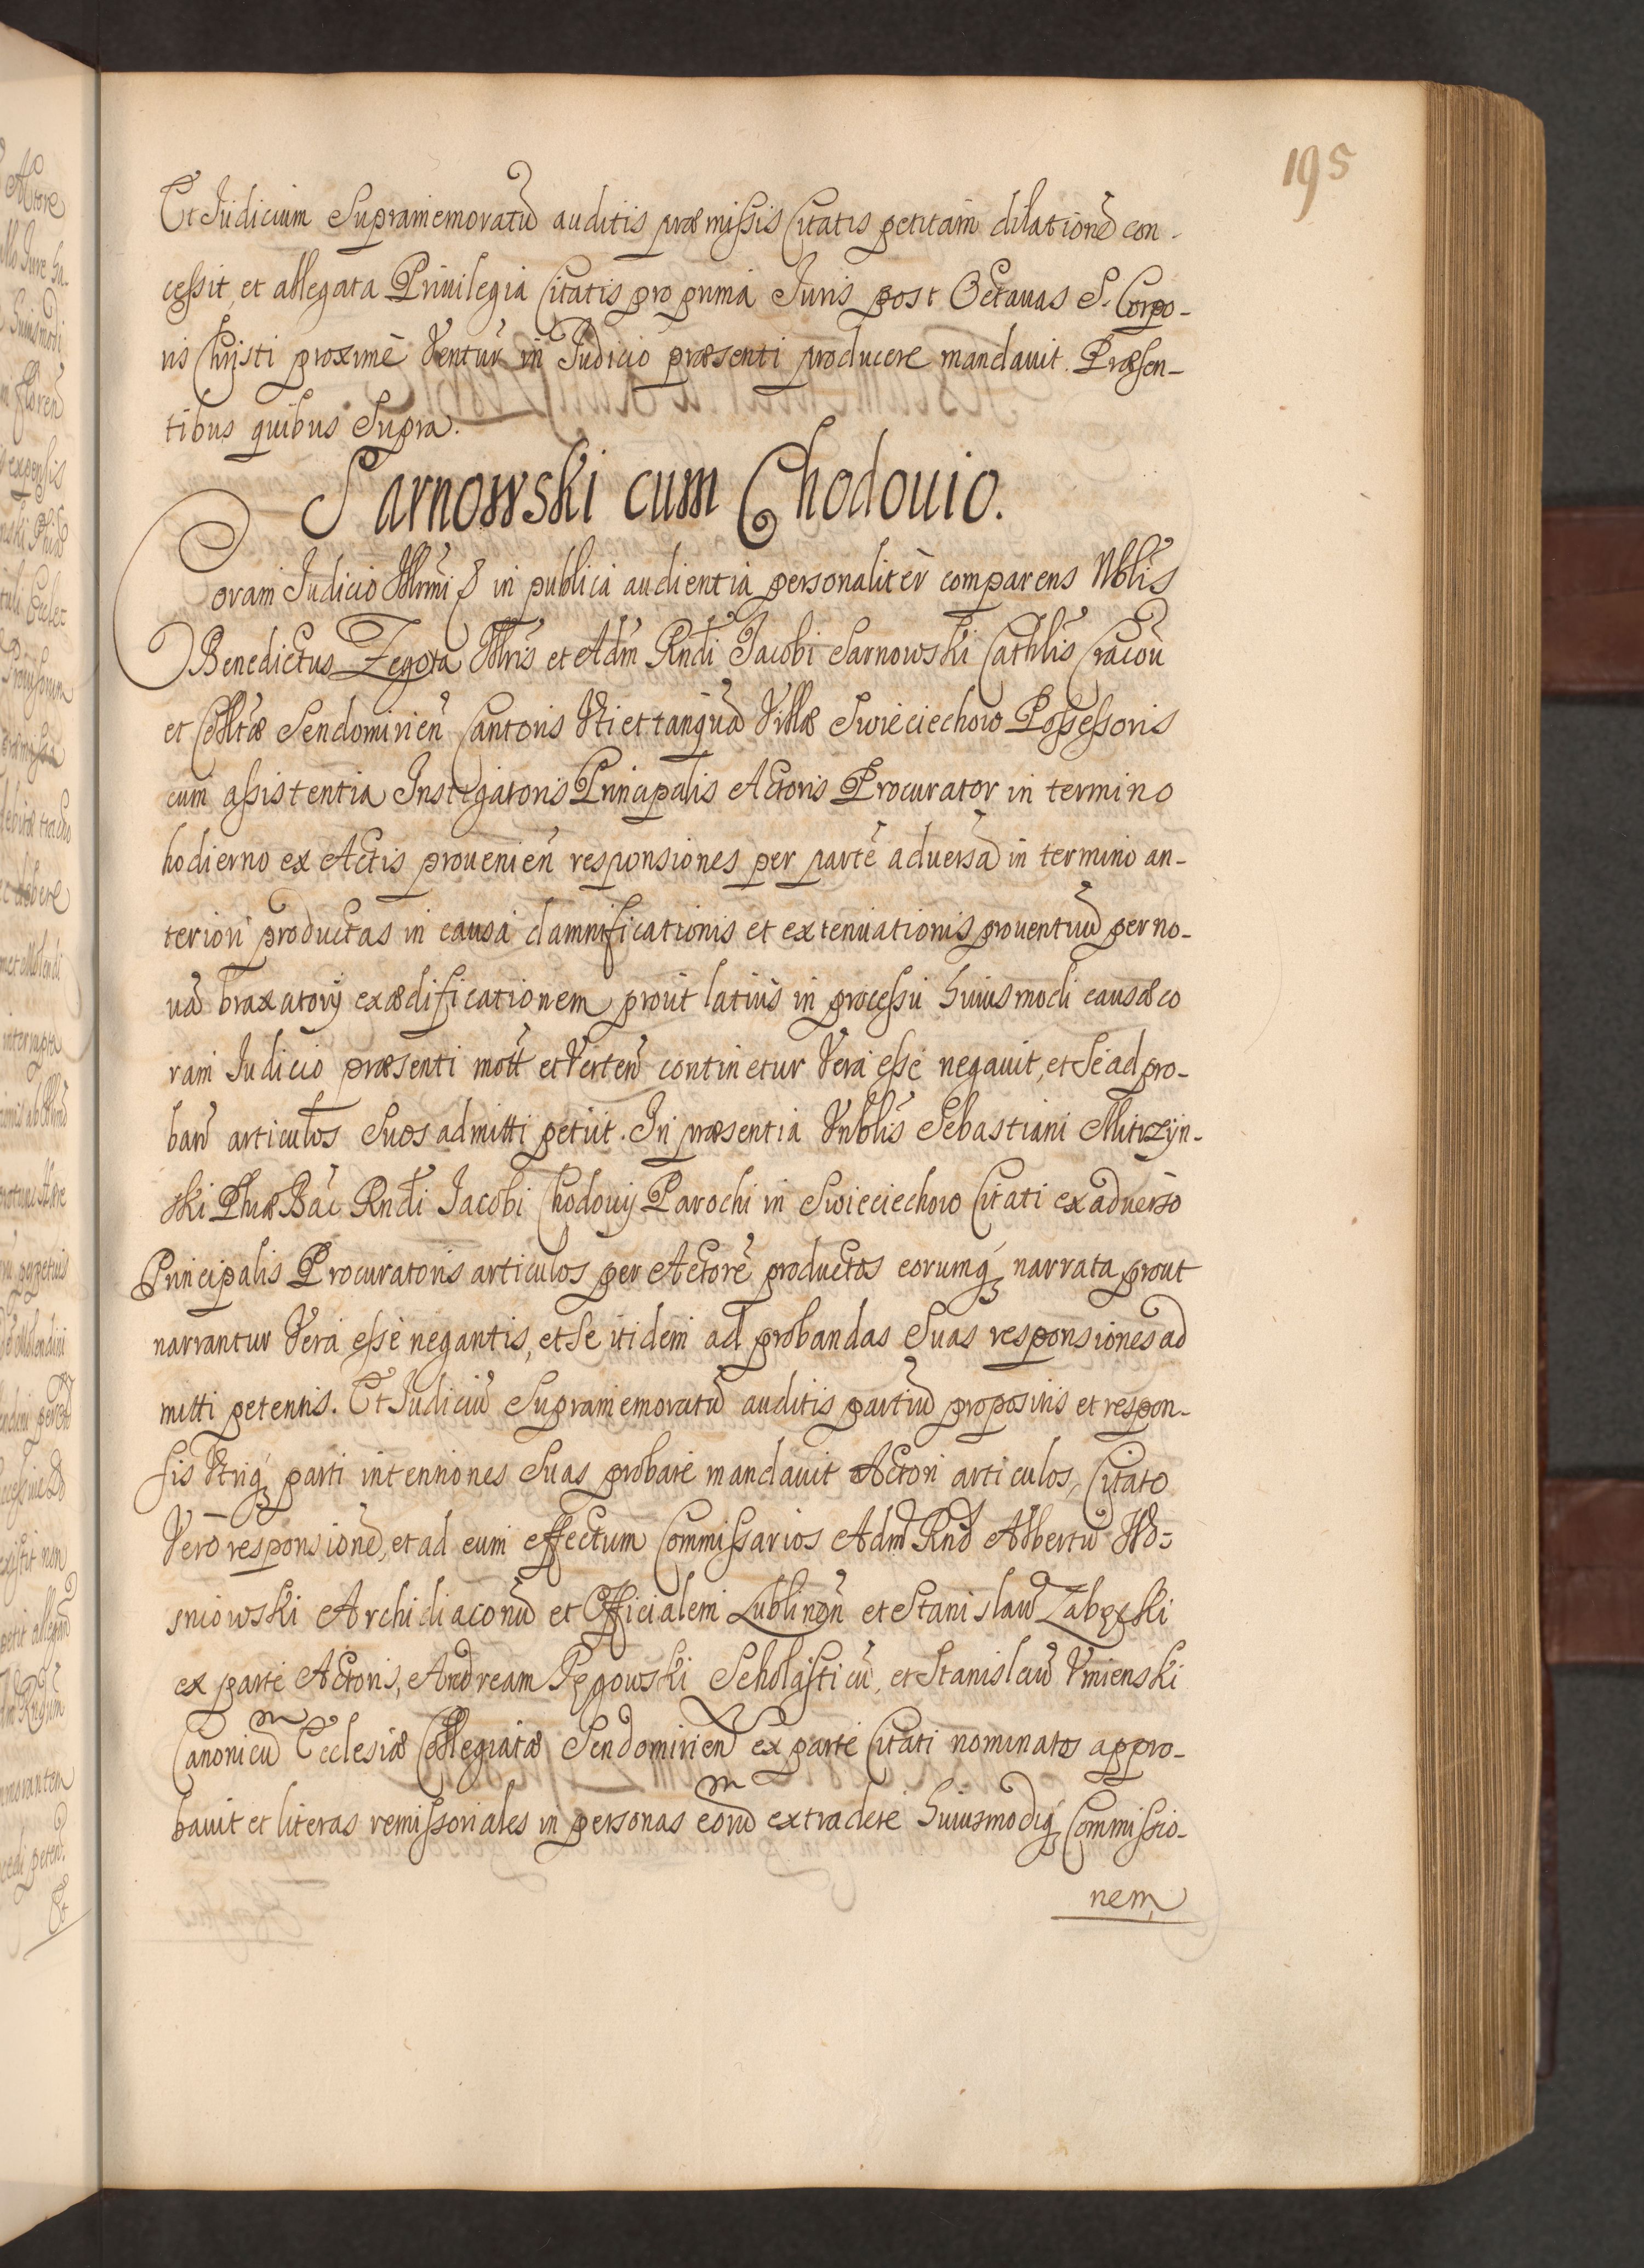 195
Et Iudicium Supramemoratū auditis præmissis Citatis petitam dilationē con-
cessit, et allegata Priuilegia Citatis pro prima Iuris post Octauas S. Corpo-
ris Christi proximē Venturā in Iudicio præsenti producere mandauit. Præsen-
tibus quibus Supra.
Sarnowski cum Chodouio.
Coram Iudicio Illrmi in publica audientia personaliter comparens Nblis
Benedictus Zegota Illris et Adm Rndi Jacobi Sarnowski Cathlis Cracoū
et Colltæ Sendomirień Cantoris Vti et tanquā Villæ Swieciechow Possessoris
cum assistentia Instigatoris Principalis Actoris Procurator in termino
hodierno ex Actis prouenień responsiones per partē aduersā in termino an-
teriori productas in causa damnificationis et extenuationis prouentuū per no-
uā braxatorij exædificationem prout latius in processu huiusmodi causæ co
ram Iudicio præsenti mott et Verteń continetur Vera esse negauit, et Se ad pro-
band articulos Suos admitti petijt. In præsentia Vnblis Sebastiani Mitrzyn-
ski Phiæ Bac Rndi Jacobi Chodouij Parochi in Swieciechow Citati ex aduerso
Principalis Procuratoris articulos per Actorē productos eorumq; narrata prout
narrantur Vera esse negantis, et Se itidem ad probandas Suas responsiones ad
mitti petentis. Et Iudiciū Supramemoratū auditis partiū propositis et respon-
sis Vtriq; parti intentiones Suas probare mandauit Actori articulos, Citato
Vero responsionē, et ad eum effectum Commissarios Adm Rnd Albertū Wo-
sniowski Archidiaconū et Officialem Lublineń et Stanislaū Zabęcki
ex parte Actoris, Andream Pęgowski Scholasticū, et Stanislaū Vmienski
Canonicū Ecclesiæ Collegiatæ Sendomirień ex parte Citati nominatos appro-
bauit et literas remissoriales in personas eorū extradere huiusmodiq; Commissio-
nem